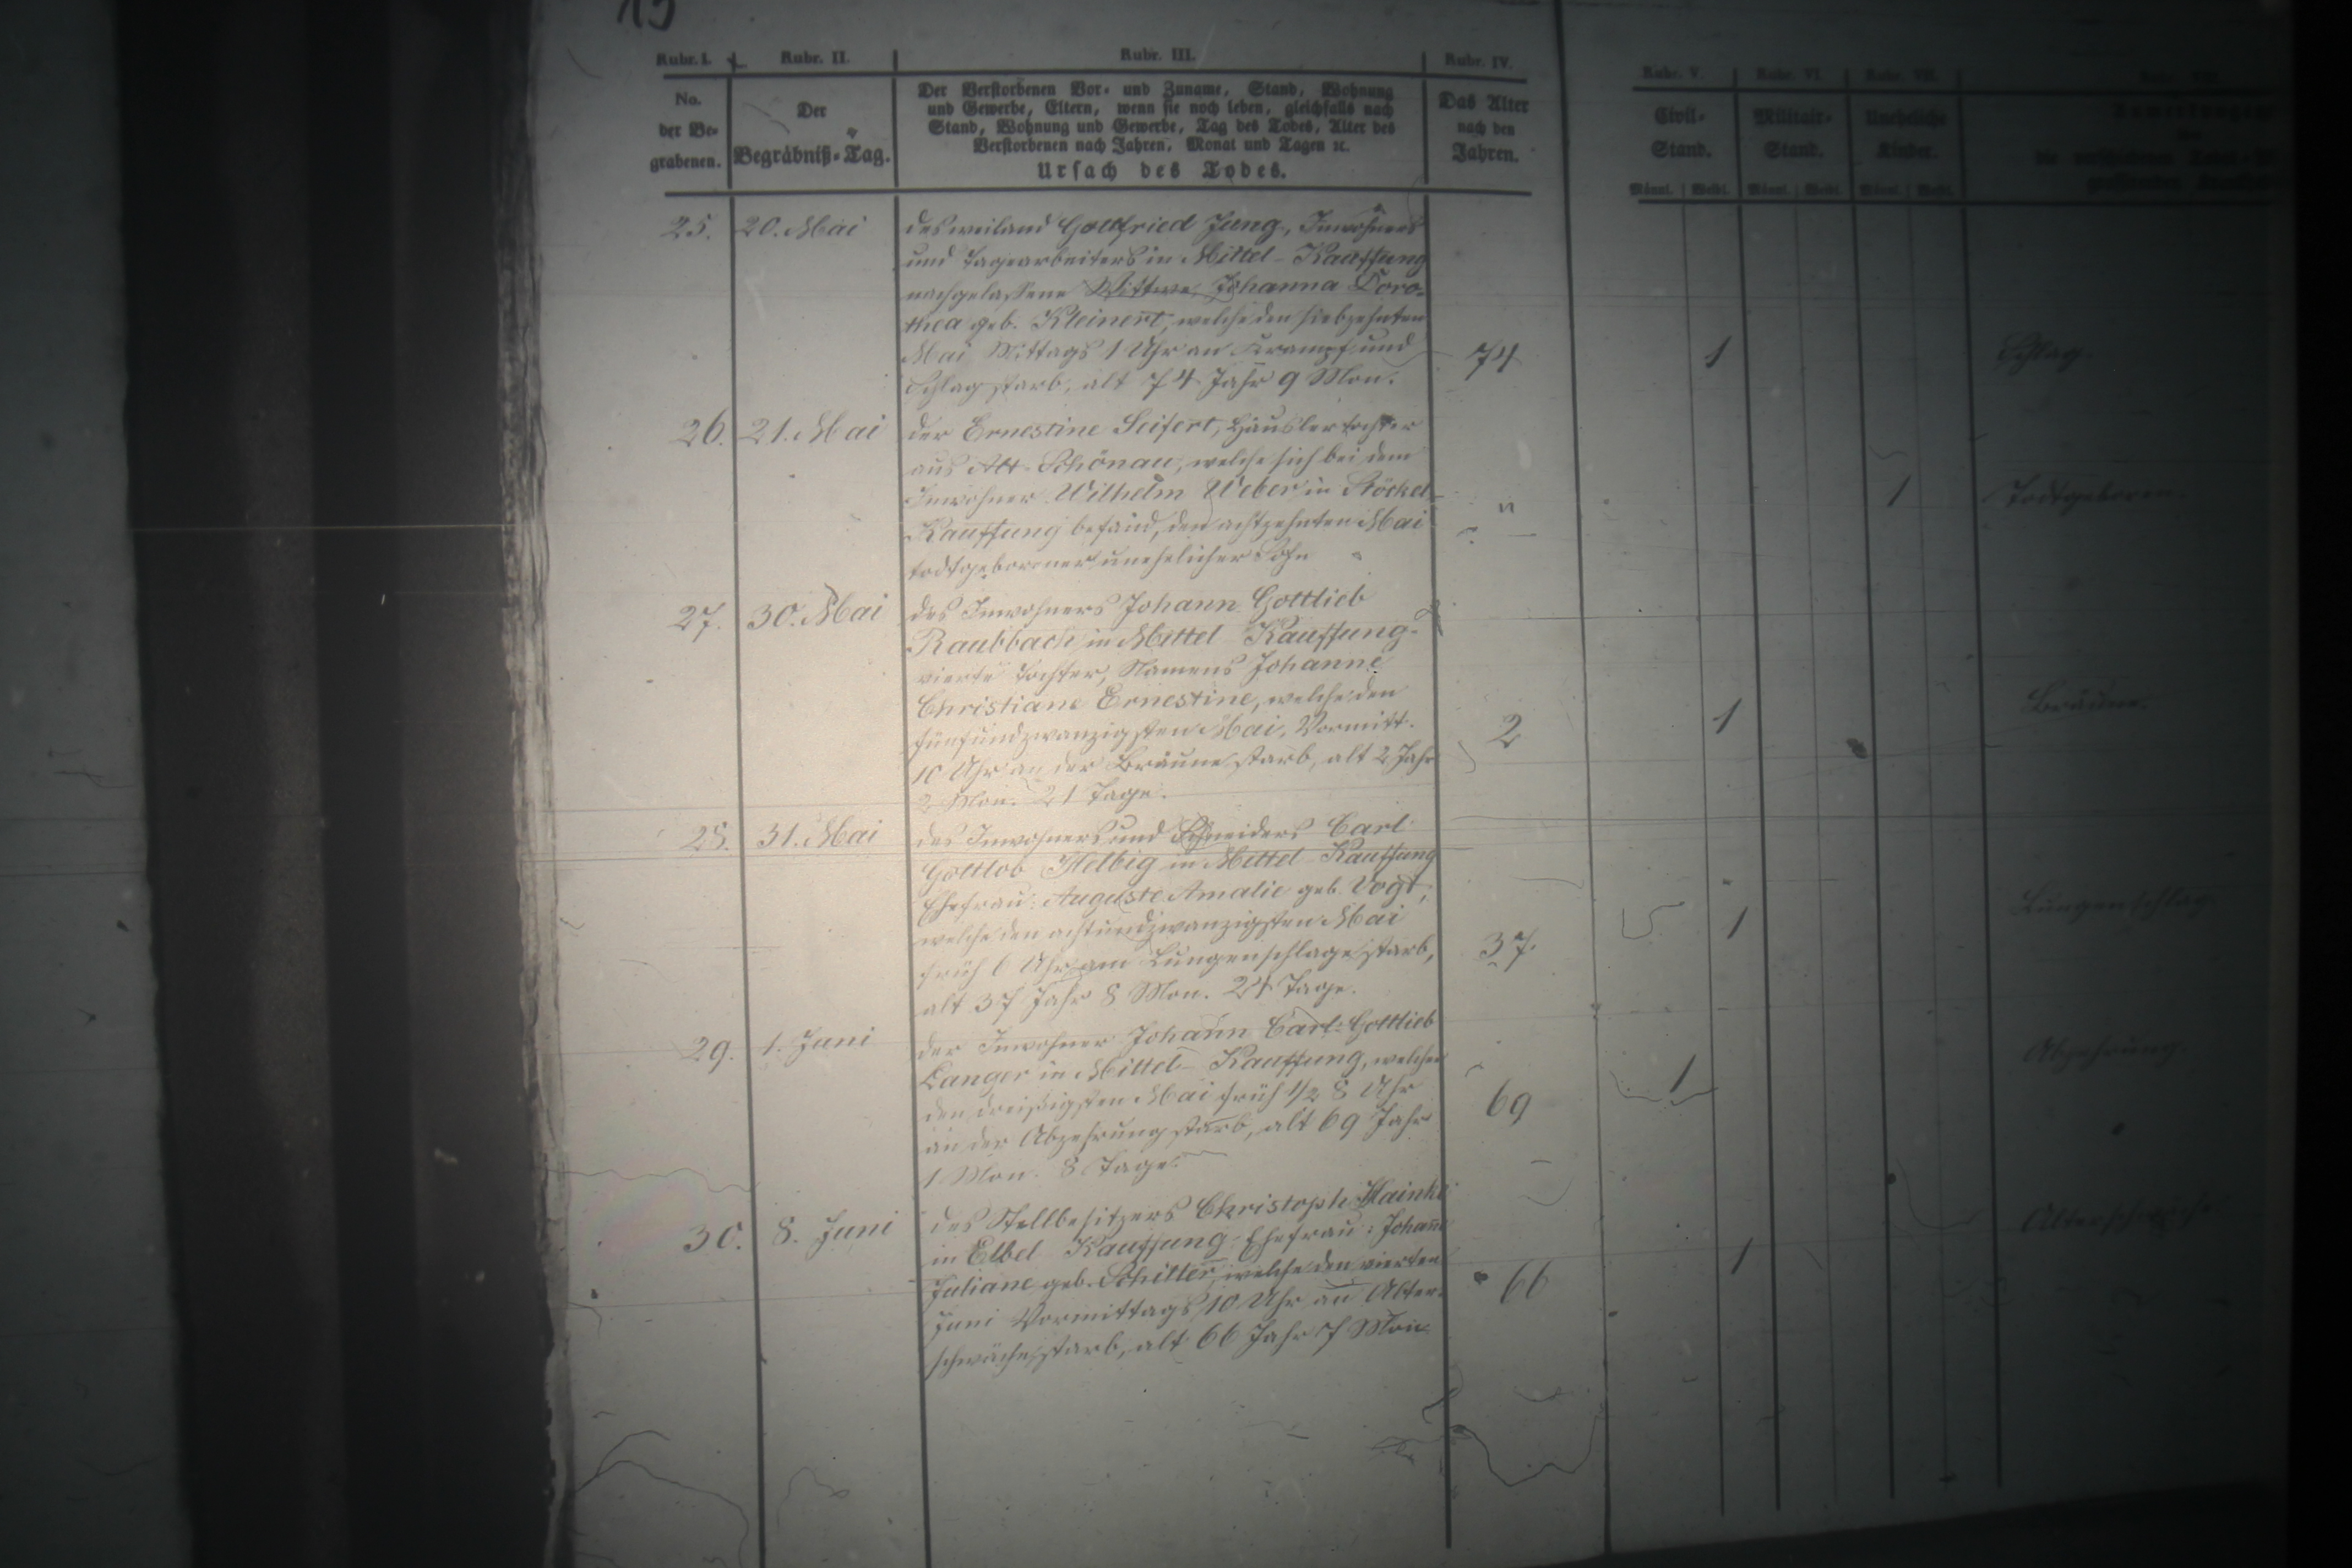 15
Rubr. I.
Rubr. II.
Rubr. III.
Rubr. IV.
No.
der Be=
grabenen.
Der
Begräbniß=Tag.
Der Verstorbenen Vor= und Zuname, Stand, Wohnung
und Gewerbe, Eltern, wenn sie noch leben, gleichfalls nach
Stand, Wohnung und Gewerbe, Tag des Todes, Alter des
Verstorbenen nach Jahren, Monat und Tagen ꝛc.
Ursach des Todes.
Das Alter
nach den
Jahren.
Rubr. V.
Rubr. VI.
Rubr. VII.
Civil=
Stand.
Militair=
Stand.
Uneheliche
Kinder.
Männl. Weibl.
Männl. Weibl.
Männl. Weibl.
25. 20. Mai
des weiland Gottfried Jung, Inwohners
und Tagearbeiters in Mittel-Kauffung
nachgelassene Wittwe, Johanna Doro=
thea geb. Kleinert, welche den siebzehnten
Mai Mittags 1 Uhr an Krampf und
Schlag starb, alt 74 Jahr 9 Mon.
74
1
Schlag.
26. 21. Mai
der Ernestine Seifert, Häuslertochter
aus Alt-Schönau, welche sich bei dem
Inwohner Wilhelm Weber in Stöckel-
Kauffung befand, den achtzehnten Mai
todtgeborener unehelicher Sohn
"
1
Todtgeboren.
27. 30. Mai
des Inwohners Johann Gottlieb
Raubbach in Mittel Kauffung
vierte Tochter, Namens Johanne
Christiane Ernestine, welche den
fünfundzwanzigsten Mai, Vormitt.
10 Uhr an der Bräune starb, alt 2 Jahr
2 Mon. 21 Tage.
2
1
Bräune.
28. 31. Mai
des Inwohners und Schneiders Carl
Gottlob Helbig in Mittel Kauffung
Ehefrau: Auguste Amalie geb. Vogt,
welche den achtundzwanzigsten Mai
früh 6 Uhr am Lungenschlage starb,
alt 37 Jahr 8 Mon. 24 Tage.
37.
1
Lungenschlag.
29. 1. Juni
der Inwohner Johann Carl Gottlieb
Langer in Mittel-Kauffung, welcher
den dreißigsten Mai früh 1/2 8 Uhr
an der Abzehrung starb, alt 69 Jahr
1 Mon. 8 Tage.
69
1
Abzehrung.
30. 8. Juni
des Stellbesitzers Christoph Hainke
in Elbel Kauffung Ehefrau: Johanne
Juliane geb. welche den vierten
Juni Vormittags 10 Uhr an Alter=
schwäche starb, alt 66 Jahr 7 Mon.
66
1
Alterschwäche